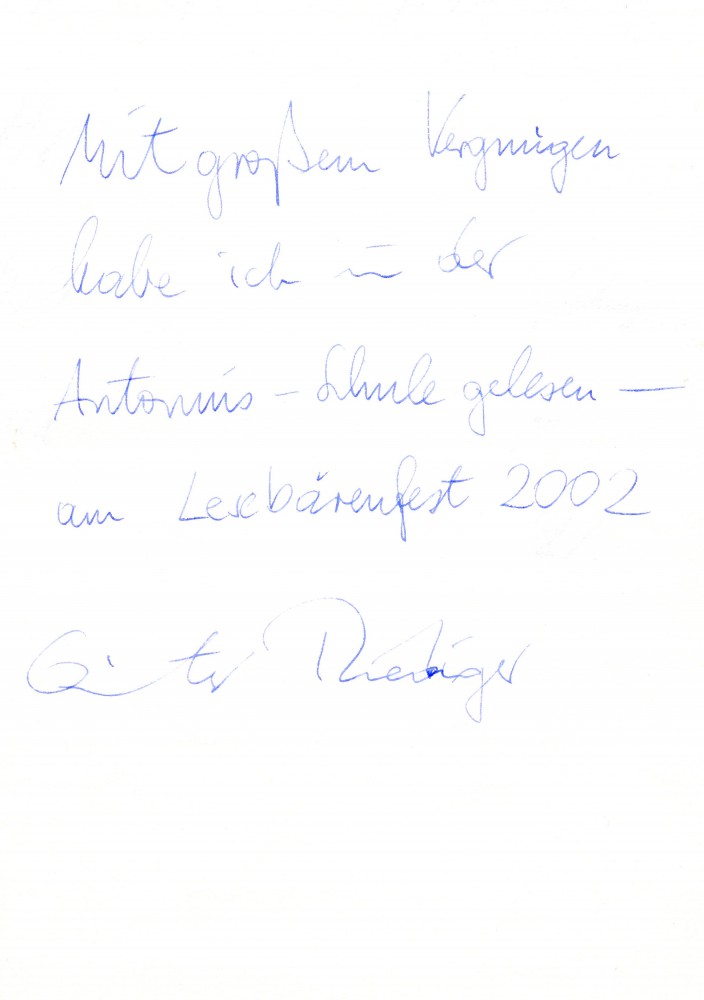 Mit großem Vergnügen
habe ich in der
Antonius - Schule gelesen —
am Lesebärenfest 2002
Günter